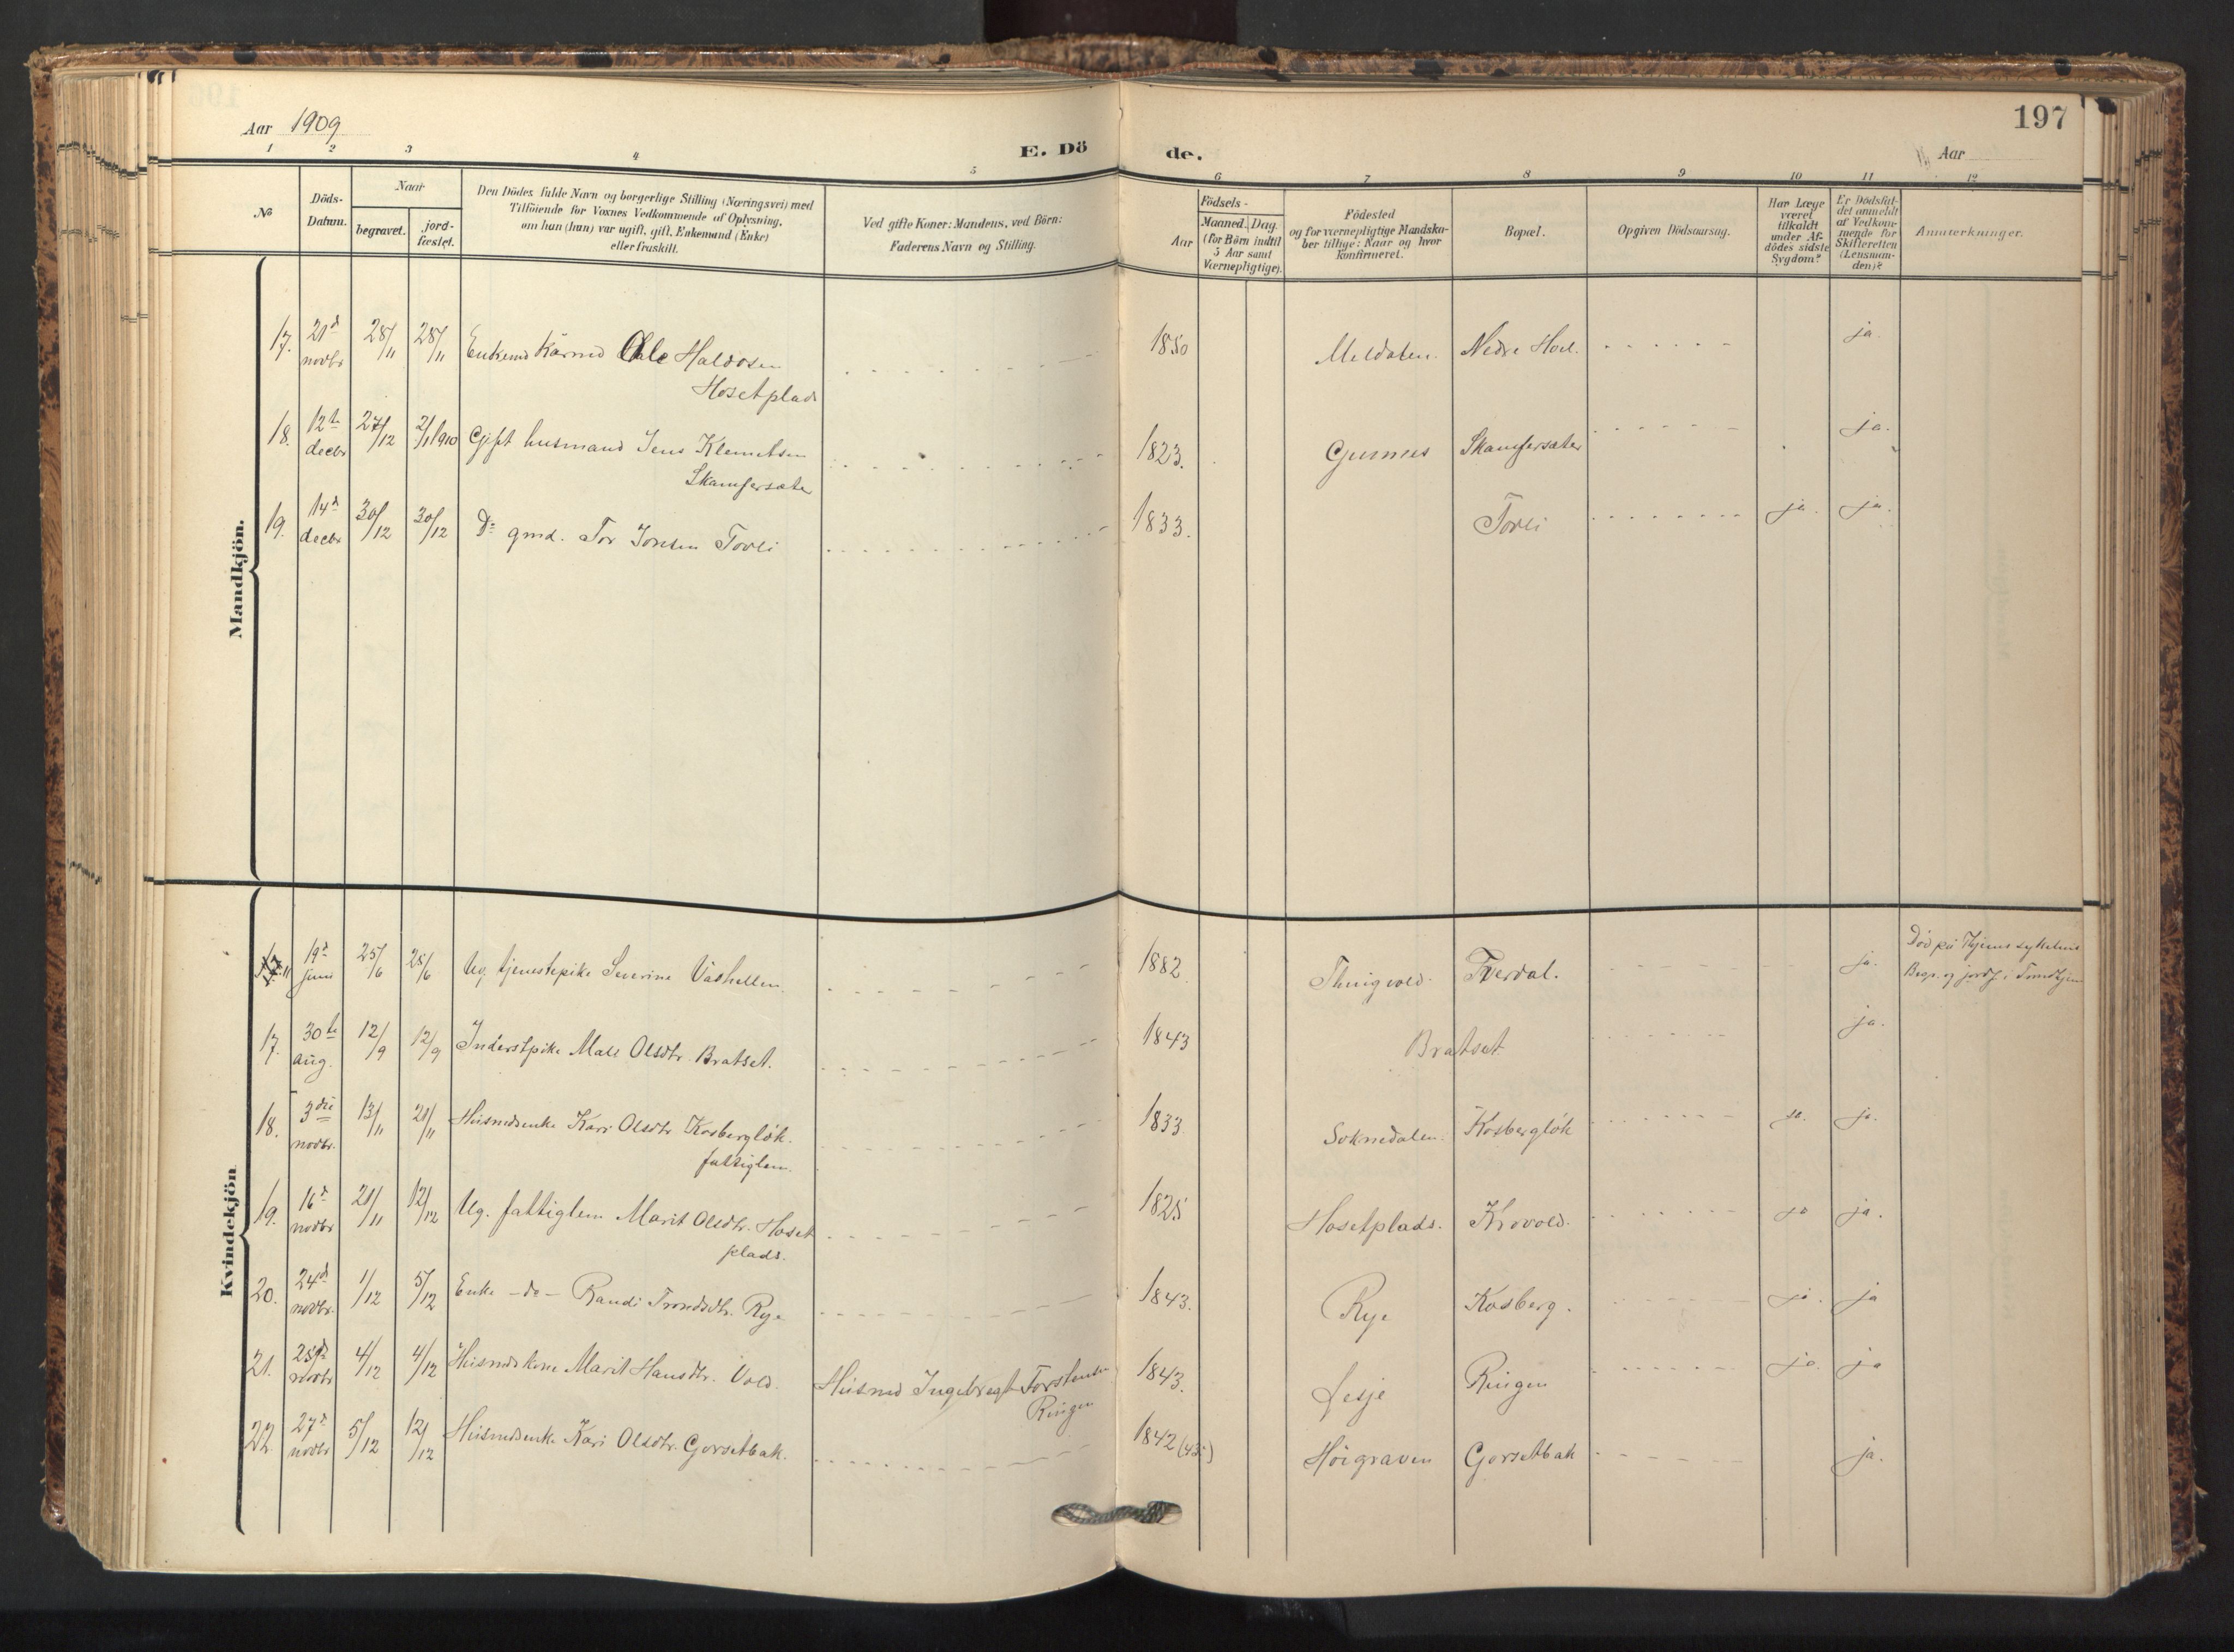 197
Aar 1909
Aar
1 2 3 4 5 6 7 8 9 10 11 12
E. Dö de.
No
Döds-
Datum.
Naar
begravet.
jord-
fæstet.
Den Dödes fulde Navn og borgerlige Stilling (Næringsvei) med
Tilföiende for Voxnes Vedkommende af Oplysning,
om han (hun) var ugift, gift, Enkemand (Enke)
eller fraskilt.
Ved gifte Koner: Mandens, ved Börn:
Faderens Navn og Stilling.
Födsels-
Aar
Maaned. Dag.
(for Börn indtil
5 Aar samt
Værnepligtige).
Födested
og for værnepligtige Mandska-
ber tillige: Naar og hvor
konfirmeret.
Bopæl.
Opgiven Dödsaarsag.
Har Læge
været
tilkaldt
under Af-
dödes sidste
Sygdom?
Er Dödsfal-
det anmeldt
af Vedkom-
mende for
Skifteretten
(Lensman-
den)?
Anmærkninger.
Mandkjön.
17. 21d novbr 28/11 28/11 Enkemd Kårmd Ole Haldosen 1850 Meldalen. Nedre Hoel. ja.
Hosetplads
18. 12te decbr 27/12 2/1 1910 Gift husmand Jens Klemetsen 1823. Skamfersæter ja.
Skamfersæter
19. 14d decbr 30/12 30/12 Do gmd. Tor Jonsen Torli 1833. Torli ja. ja.
Kvindekjön
19d juni 25/6 25/6 Ug. tjenestepike Severine Vashellen. 1882 Thingvold. Tverdal. ja. Død på Thjems sykehus
Begr. og jordf. i Trondhjem
17. 30te aug. 12/9 12/9 Inderstpike Mali Olsdtr. Bratset. 1843 Bratset ja.
18. 3die novbr. 13/11 21/11 Husmdsenke Kari Olsdtr. Kosbergløk. 1833. Soknedalen. Kosbergløk ja. ja.
fattiglem.
19. 16d novbr 21/11 12/12 Ug. fattiglem Marit Olsdtr. Hoset 1825 Hosetplads. Krovold. ja ja.
plads.
20. 24d novbr. 1/12 5/12 Enke -do- Randi Trondsdtr. Rye 1843. Rye Kosberg. ja. ja
21. 25d novbr 4/12 4/12 Husmdskone Marit Hansdtr. Vold. Husmd Ingebregt Torstensen 1843. Lesje Ringen ja. ja
Ringen
22. 27d novbr 5/12 12/12 Husmdsenke Kari Olsdtr. Gorsetbak. 1842 (43?) Höigraven Gorsetbak ja.